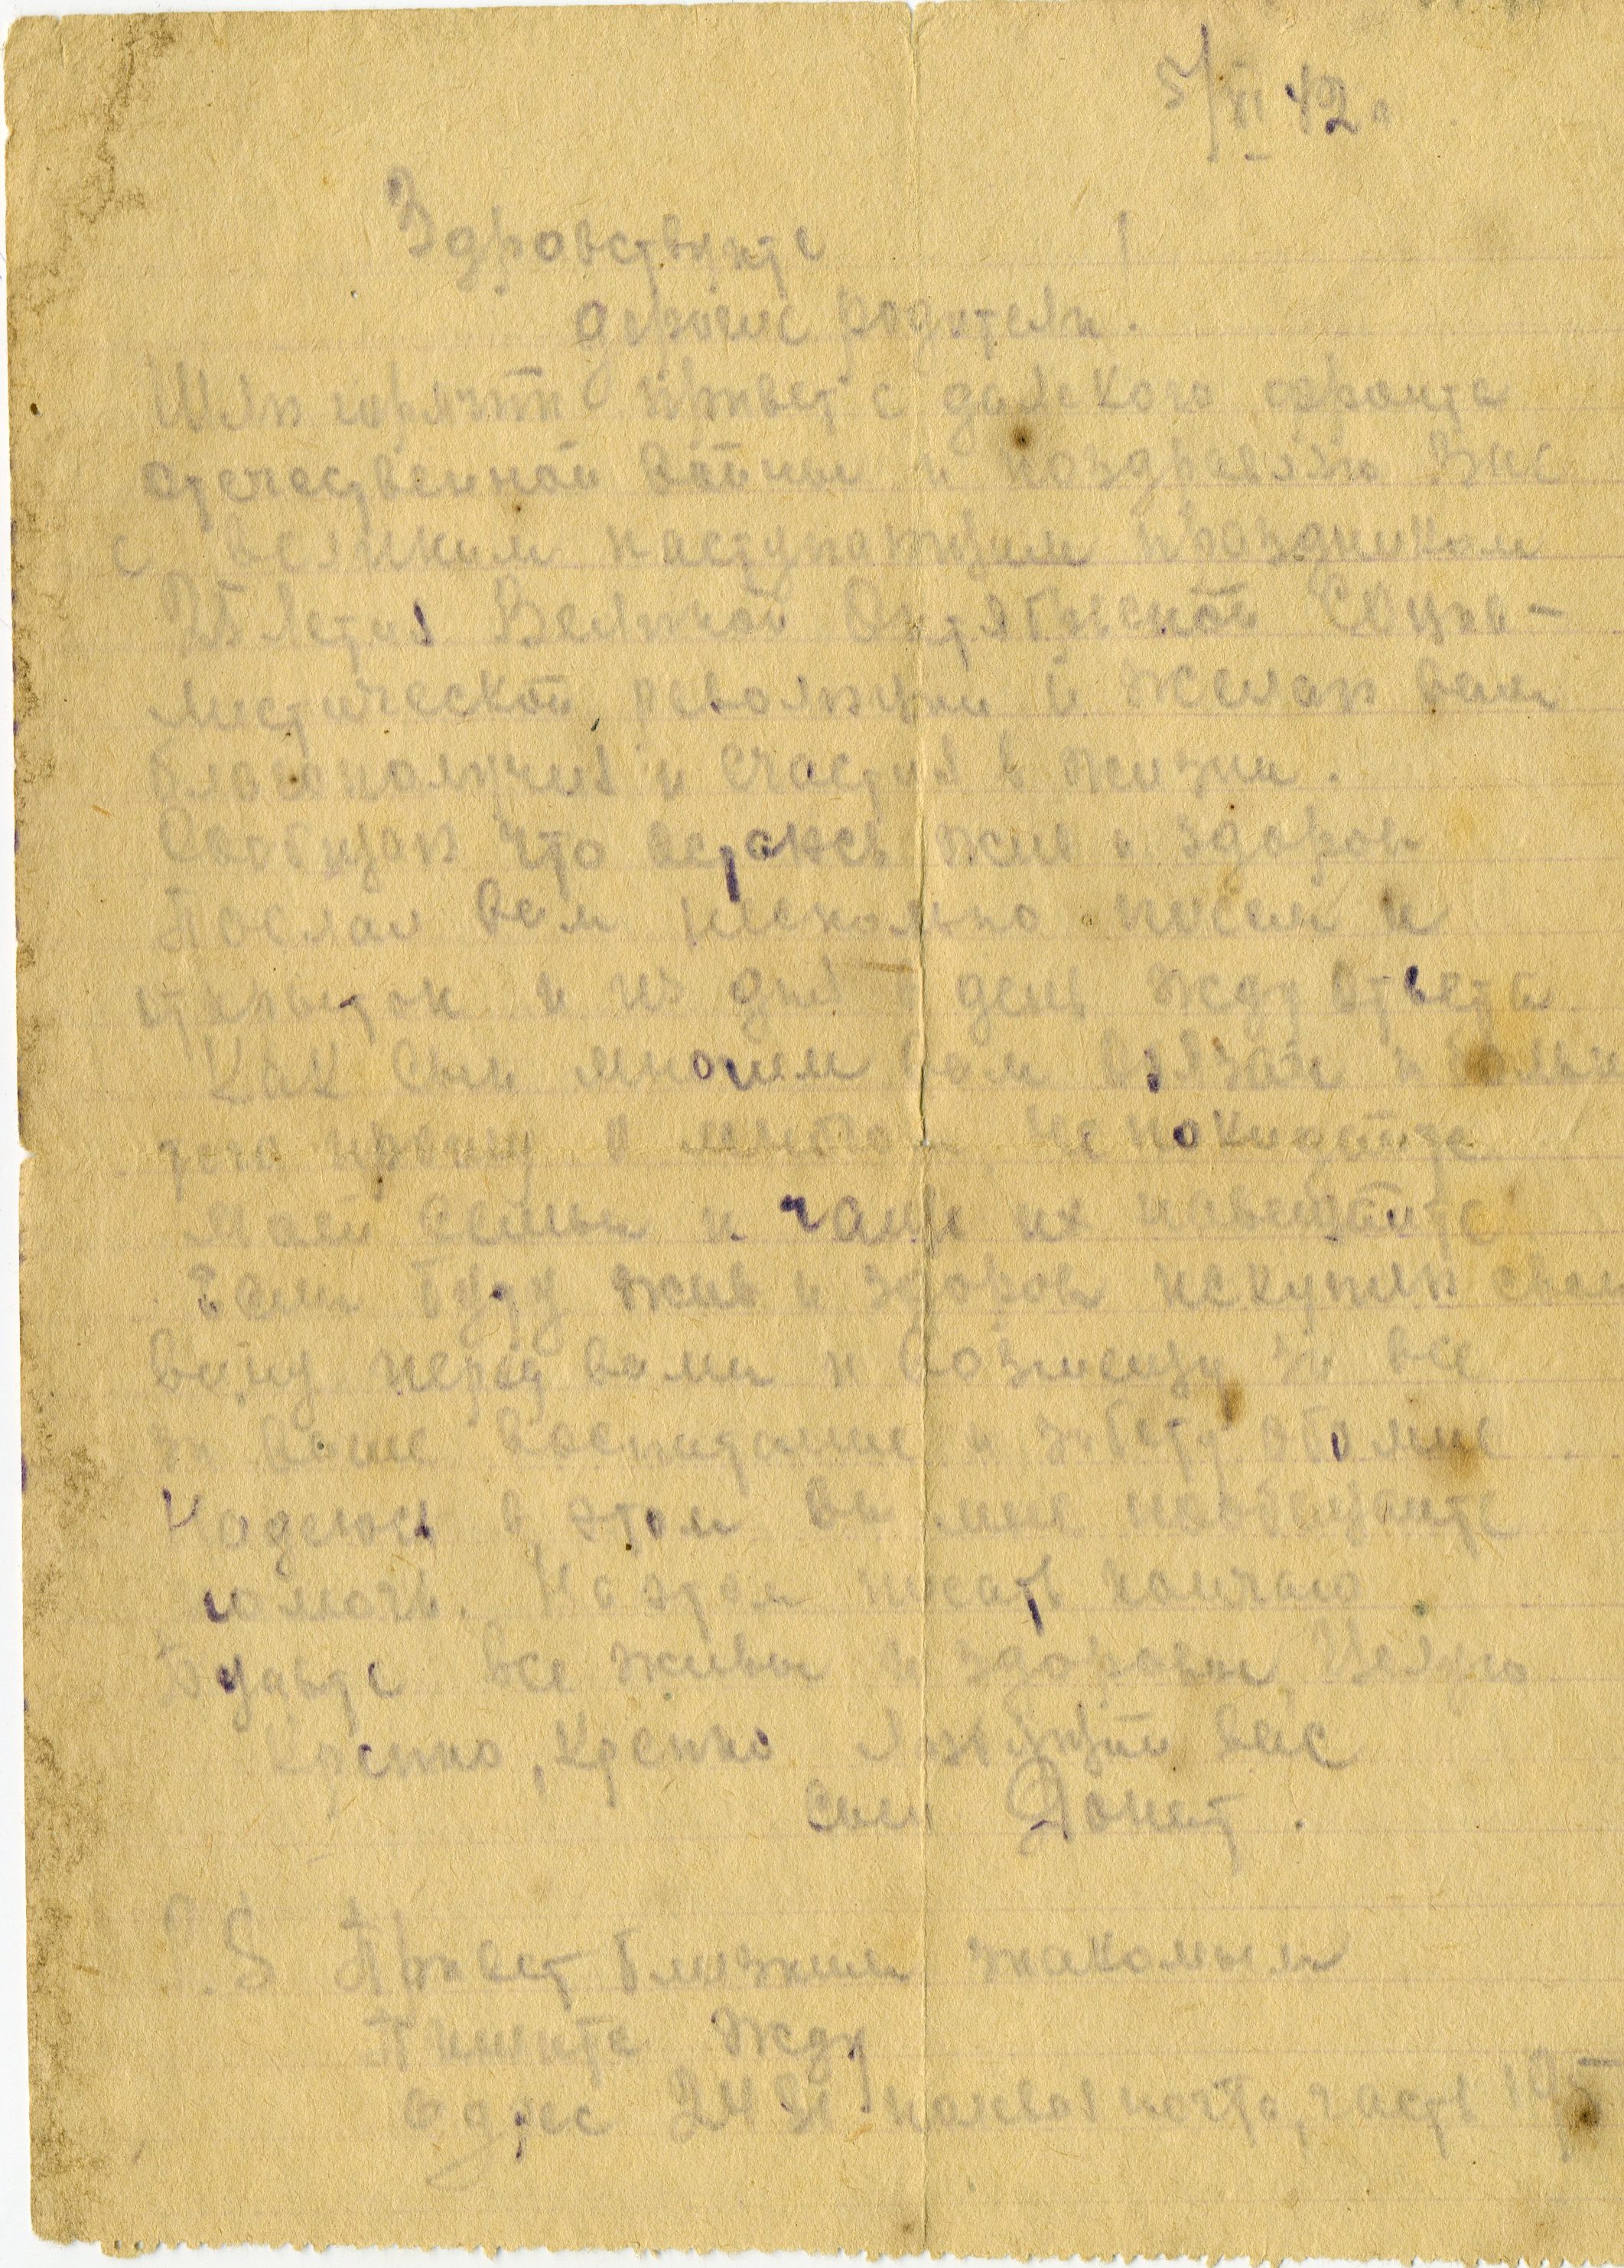 5/XI 42 г
Здравствуйте !
дорогие родители.
Шлю горячий привет с далекого фронта
отечественной войны и поздравляю Вас
с великим наступающим праздником
25 летия Великой Октябрьской Социа-
листической революции и желаю вам
благополучия и счастия в жизни.
Сообщаю что остаюсь жив и здоров
Послал вам несколько писем и
открыток и из дня в день жду ответа
Как сын многим вам обязан и
прошу не покидайте
моей семьи и чаще их навещайте
Если буду жив и здоров искуплю свою
вину перед вами и возмещу за все
за ваше воспитание и заботу обо мне
Надеюсь в этом вы мне пообещаите
помочь. На этом писать кончаю
Будьте все живы и здоровы Целую
Крепко, Крепко Любящий вас
сын Донат.
P.S Привет близким знакомым
Пишите Жду
адрес полевая почта, часть